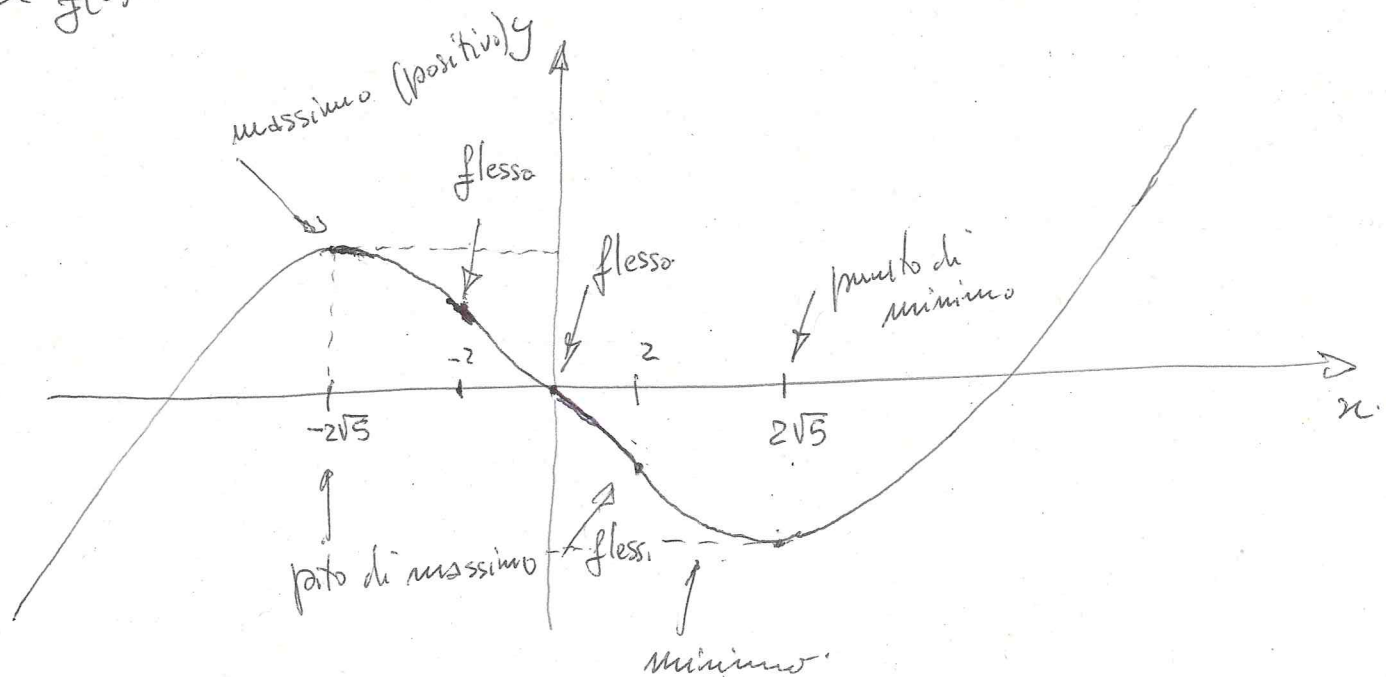 massimo (positivo)
y
flesso
flesso
punto di
minimo
-2
2
-2√5
2√5
x
pto di massimo
flessi
minimo